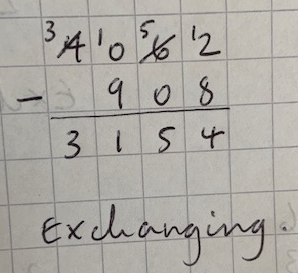 3 4 10 5 6 12
- 9 0 8
3 1 5 4
Exchanging.